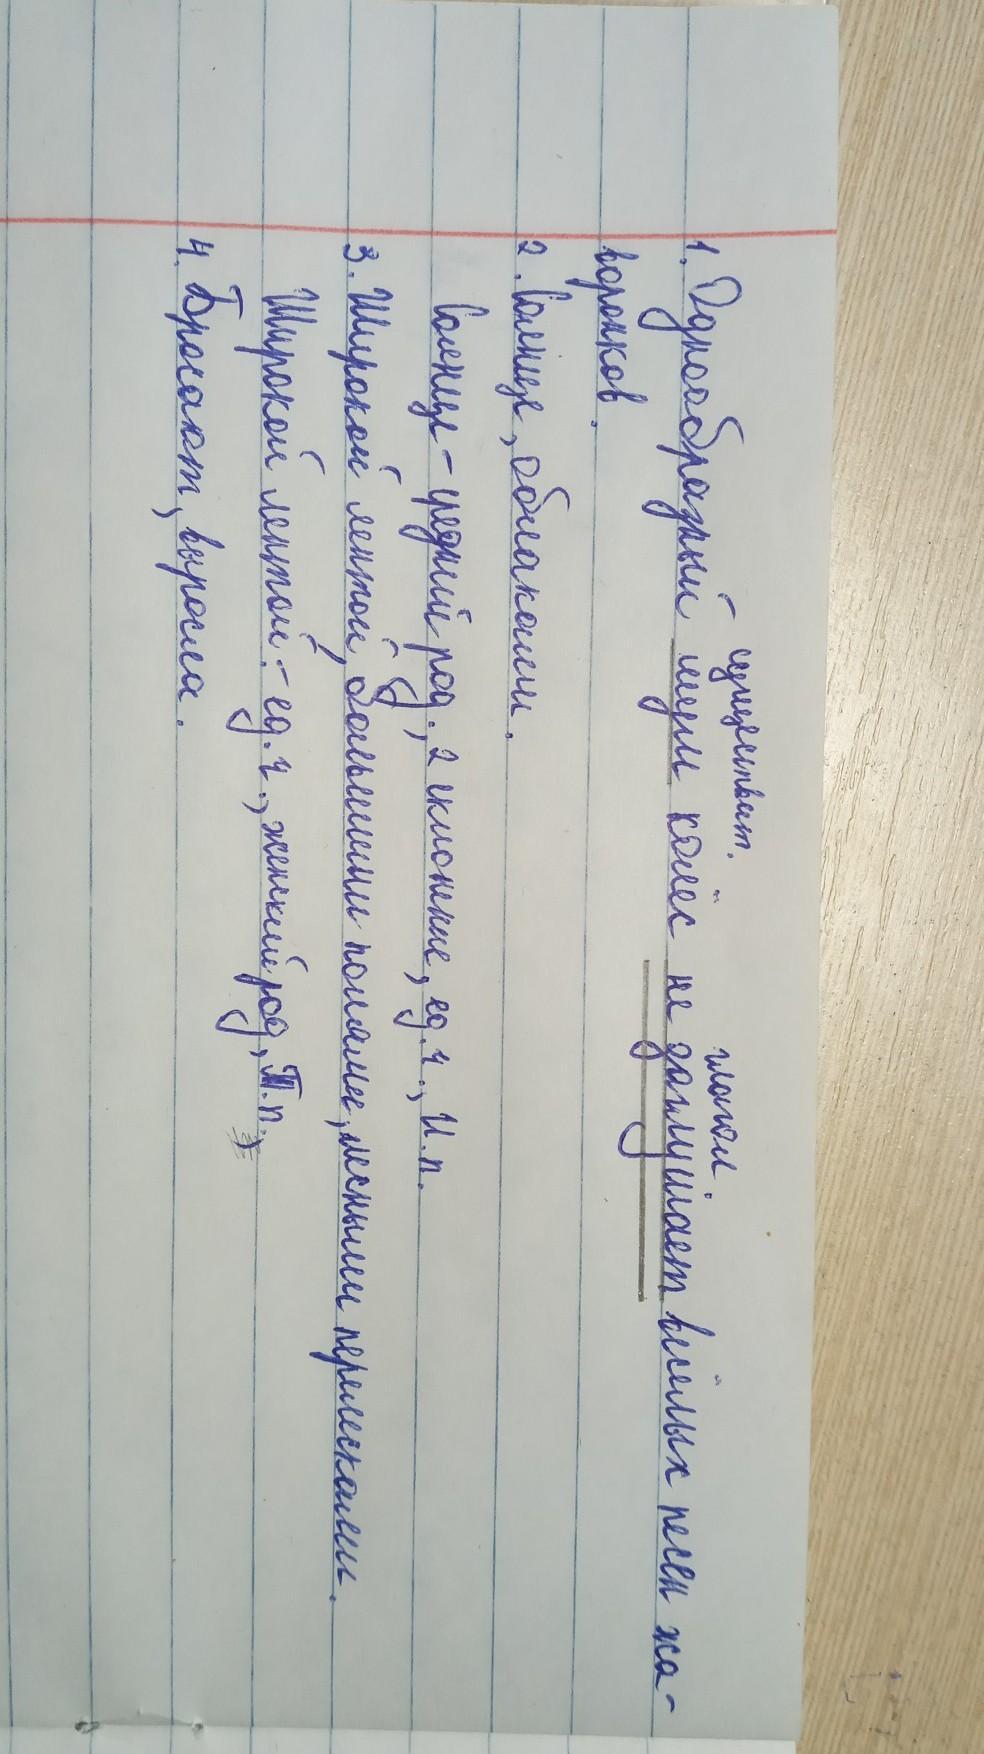 существит. глагол.
1. Однообразный шум колёс не заглушает весёлых песен жа-
воронков.
2. Солнце, облаками.
Солнце - средний род., 2 склонние, ед.ч., И.п.
3. Широкой лентой, большими полями, лесными перелесками.
Широкой лентой. - ед.ч., женский род, Т.п.,
4. Бросают, выросла.